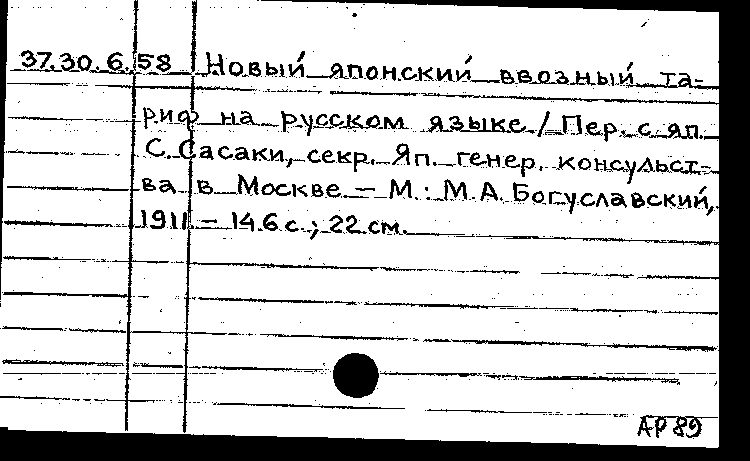 37.30.6.58 Новый японский ввозный та-
риф на русском языке / Пер. с яп.
С. Сасаки, секр. Яп. генер. консульст-
ва в Москве. – М.: М.А. Богуславский,
1911 – 146 с.; 22 см.
АР 89